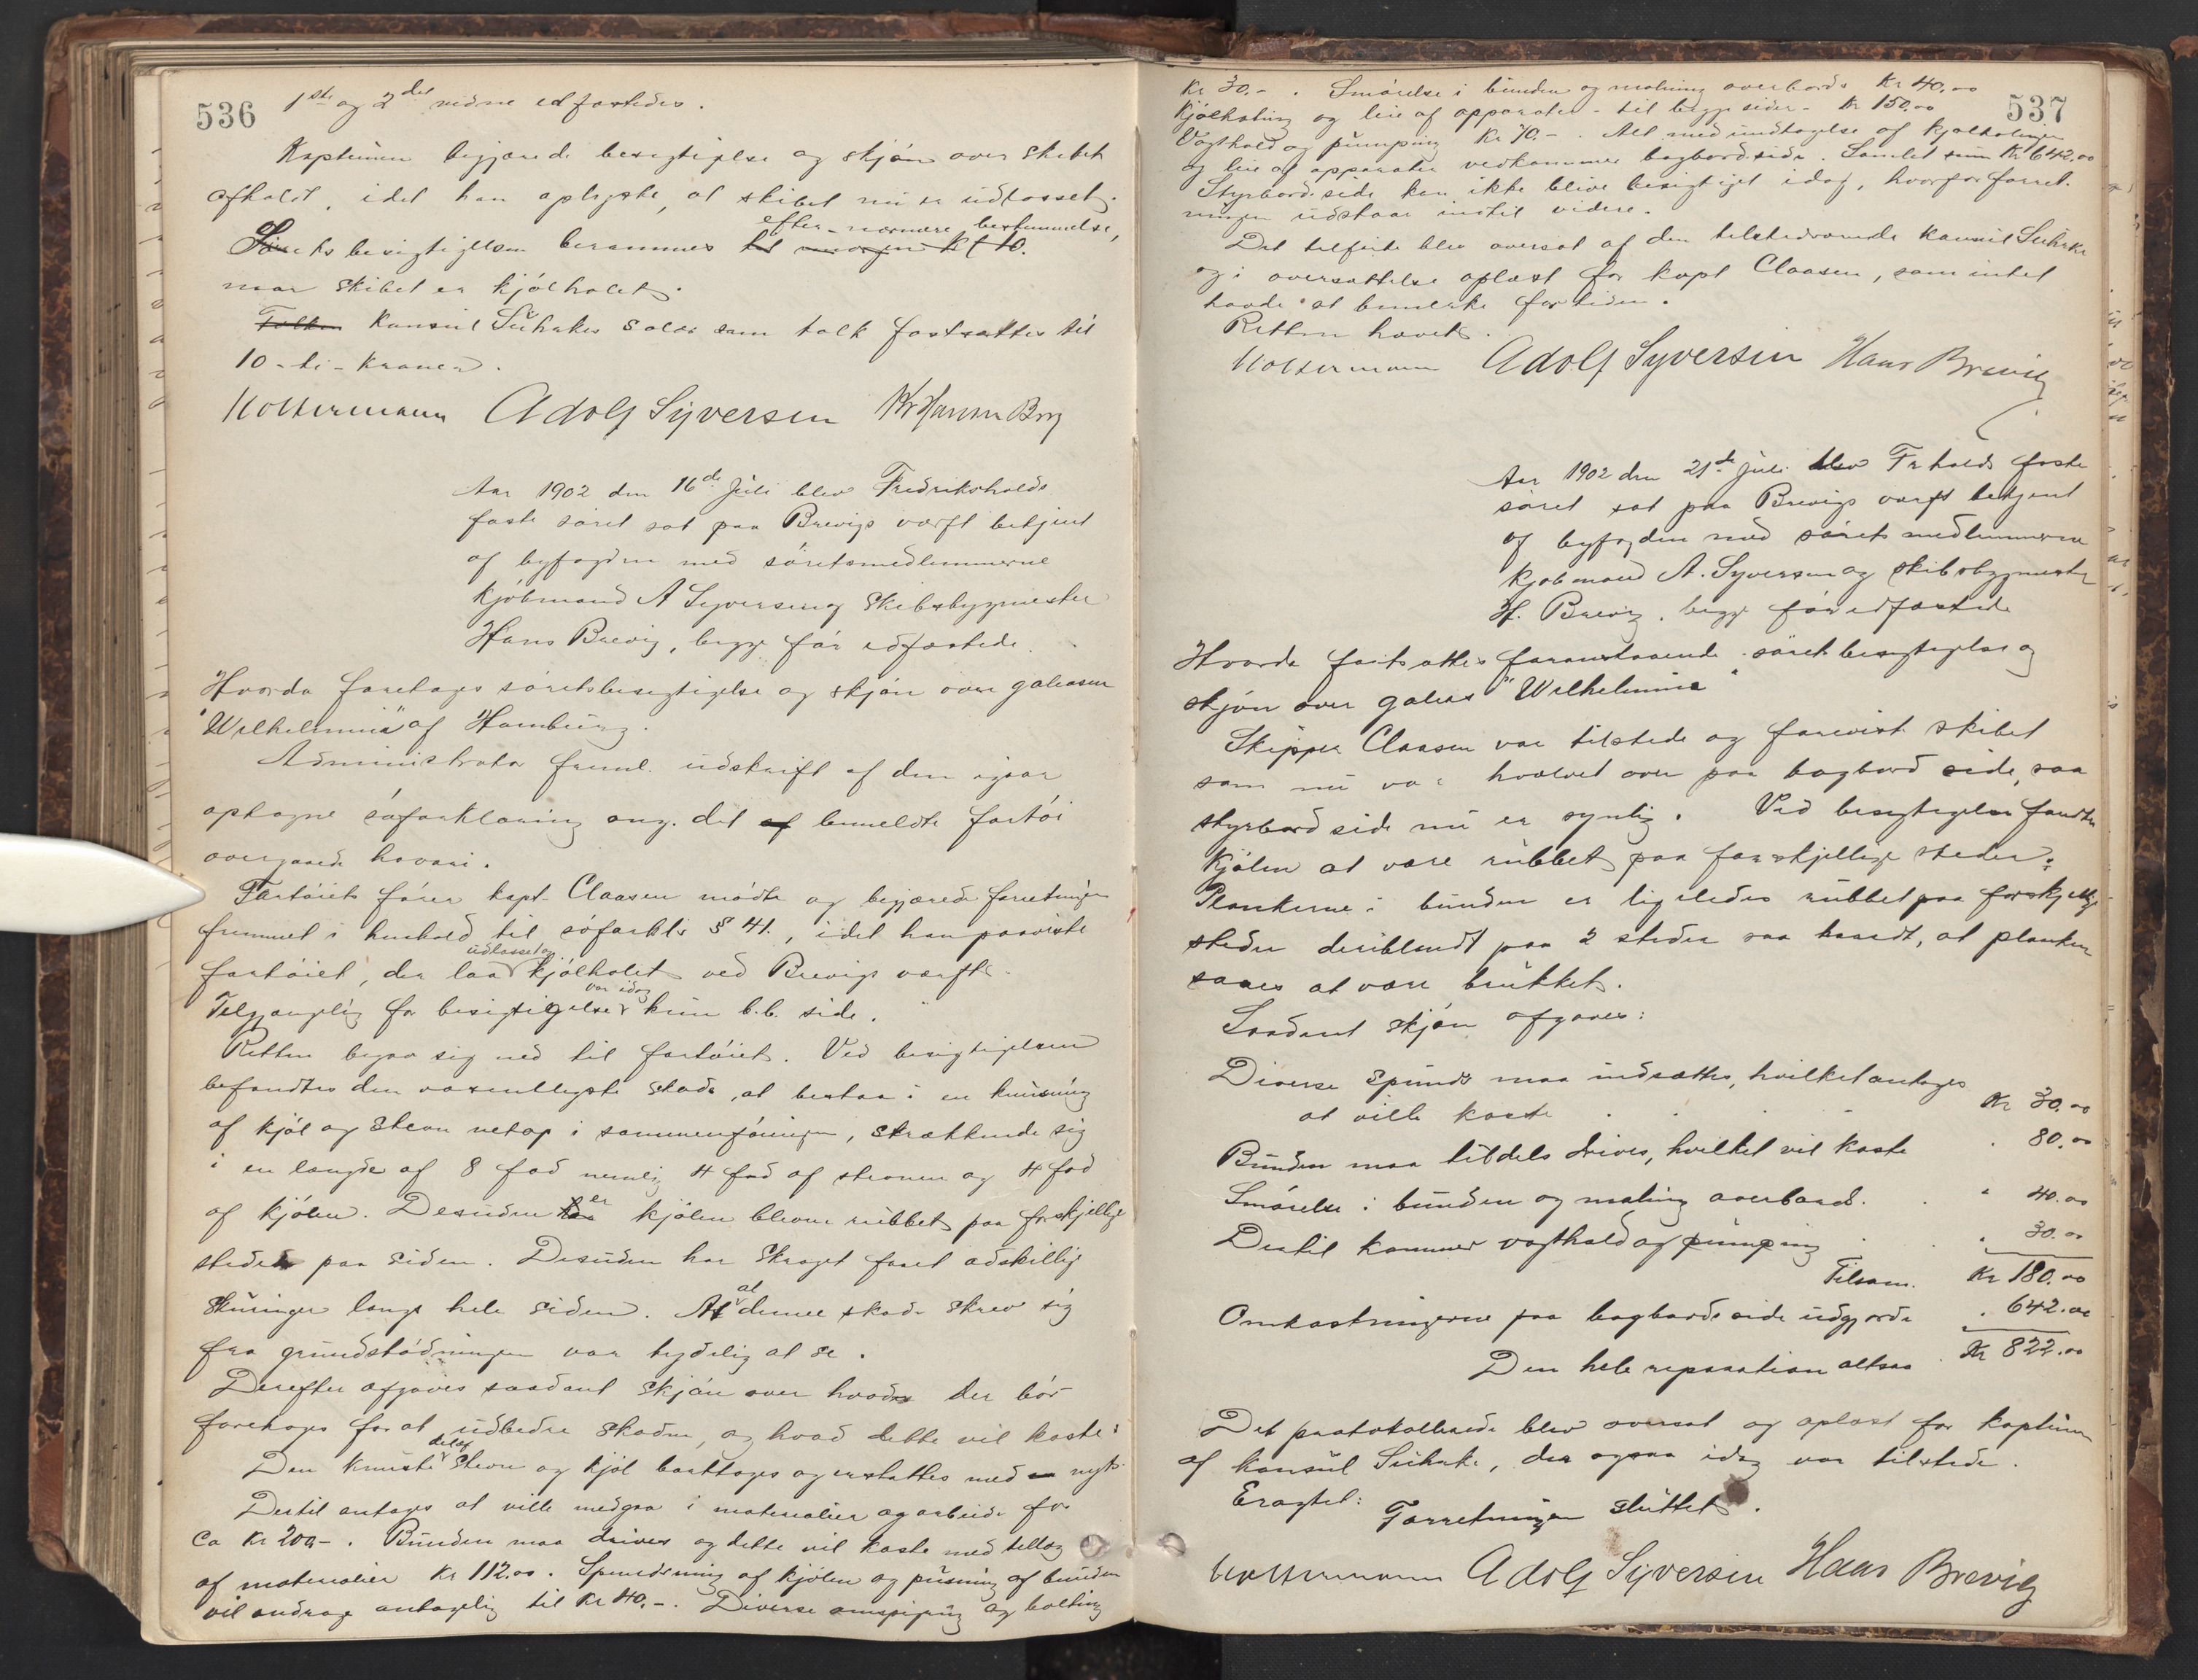 536
1ste og 2det vidne edfæstedes.
Kapteinen begjærede besigtigelse og skjön over skibet
afholdt, idet han oplyste, at skibet nu er udlosset.
efter nærmere bestemmelse,
Sörets besigtigelsen berammes til morgen kl 10.
naar skibet er kjölhalet.
Tolken Konsul Suhrkes salær som tolk fastsættes til
10 - ti - kroner.
Woltermann Adolf Syversen
Aar 1902 den 16de Juli blev Fredrikshalds
faste söret sat paa Brevigs værft betjent
af byfogden med söretsmedlemmerne
Kjöbmand A Syversen og Skibsbygmester
Hans Brevig, begge för edfæstede.
Hvorda foretoges söretsbesigtigelse og skjön over galeasen
"Wilhelmina" af Hamburg.
Administrator freml. udskrift af den igaar
optagne söforklaring ang. det af bemeldte fartöi
overgaaede havari.
Fartöiets förer kapt. Claasen mödte og begjærede forretningen
fremmet i henhold til söfartsl's § 41., idet han paaviste
udlosset og
fartöiet, der laa kjölhalet ved Brevigs værft.
var idag
Tilgjængelig for besigtigelse kun b.b. side.
Retten begav sig ned til fartöiet. Ved besigtigelsen
befandtes den væsentligste skade, at bestaa i en knusning
af kjöl og Stevn netop i sammenföiningen, strækkende sig
i en længde af 8 fod nemlig 4 fod af stevnen og 4 fod
er
af kjölen. Desuden kjölen bleven rubbet paa forskjellige
steder paa siden. Desuden har skroget faaet adskillige
skuringer langs hele siden. At
al
denne skade skrev sig
fra grundstödningen var tydelig at se.
Derefter afgaves saadant skjön over hvad der bör
foretages for at udbedre skaden, og hvad dette vil koste:
del af
Den knuste Stevn og kjöl borttages og erstattes med nyt.
Dertil antages at ville medgaa i materialier og arbeide for
Ca Kr 200,-. Bunden maa drives og dette vil koste med tillæg
af materialier Kr 112.00. Spundsning af kjölen og pusning af bunden
vil andrage antagelig til Kr 40,-. Diverse og bolting
537
Kr 30.-. Smörelse i bunden og maling overbords Kr 40.00
Kjölhaling og leie af apparater - til begge sider - Kr 150.00
Vagthold og pumping Kr 70.-. Alt med undtagelse af kjölhalingen
og leie af apparater vedkommer bagbord side. Samlet sum Kr 642.00
Styrbord side kan ikke blive besigtiget idag, hvorfor forret-
ningen udstaar indtil videre.
Det tilförte blev oversat af den tilstedeværende Konsul Suhrke
og i oversættelse oplæst for kapt Claasen, som intet
havde at bemerke for tiden.
Retten hævet.
Woltermann Adolf Syversen Hans Brevig
Aar 1902 den 21de Juli blev Frhalds faste
söret sat paa Brevigs værft betjent
af byfogden med sörets medlemmerne
Kjöbmand A. Syversen og skibsbygmester
H. Brevig, begge för edfæstede
Hvorda fortsattes foranstaaende söretsbesigtigelse og
skjön over galeas "Wilhelmina"
Skipper Claasen var tilstede og foreviste skibet
som nu var hvælvet over paa bagbord side, saa
styrbord side nu er synlig. Ved besigtigelsen fandtes
Kjölen at være rubbet paa forskjellige steder.
Plankerne i bunden er ligeledes rubbet paa forskjellige
steder deriblandt paa 2 steder saa haardt, at planken
saaes at være brukket.
Saadant skjön afgaves:
Diverse Spunds maa indsættes, hvilket antages
at ville koste . . . Kr 30.00
Bunden maa tildels drives, hvilket vil koste . 80.00
Smörelse i bunden og maling overbord. . " 40.00
Dertil kommer vagthold og pumping . . " 30.00
Tilsam. Kr 180.00
Omkostningerne paa bagbords side udgjorde . 642.00
Den hele reparation altsaa Kr 822.00
Det protokollerede blev oversat og oplæst for kapteinen
af konsul Suhrke, der ogsaa idag var tilstede.
Eragtet:
Forretningen sluttet.
Woltermann Adolf Syversen Hans Brevig